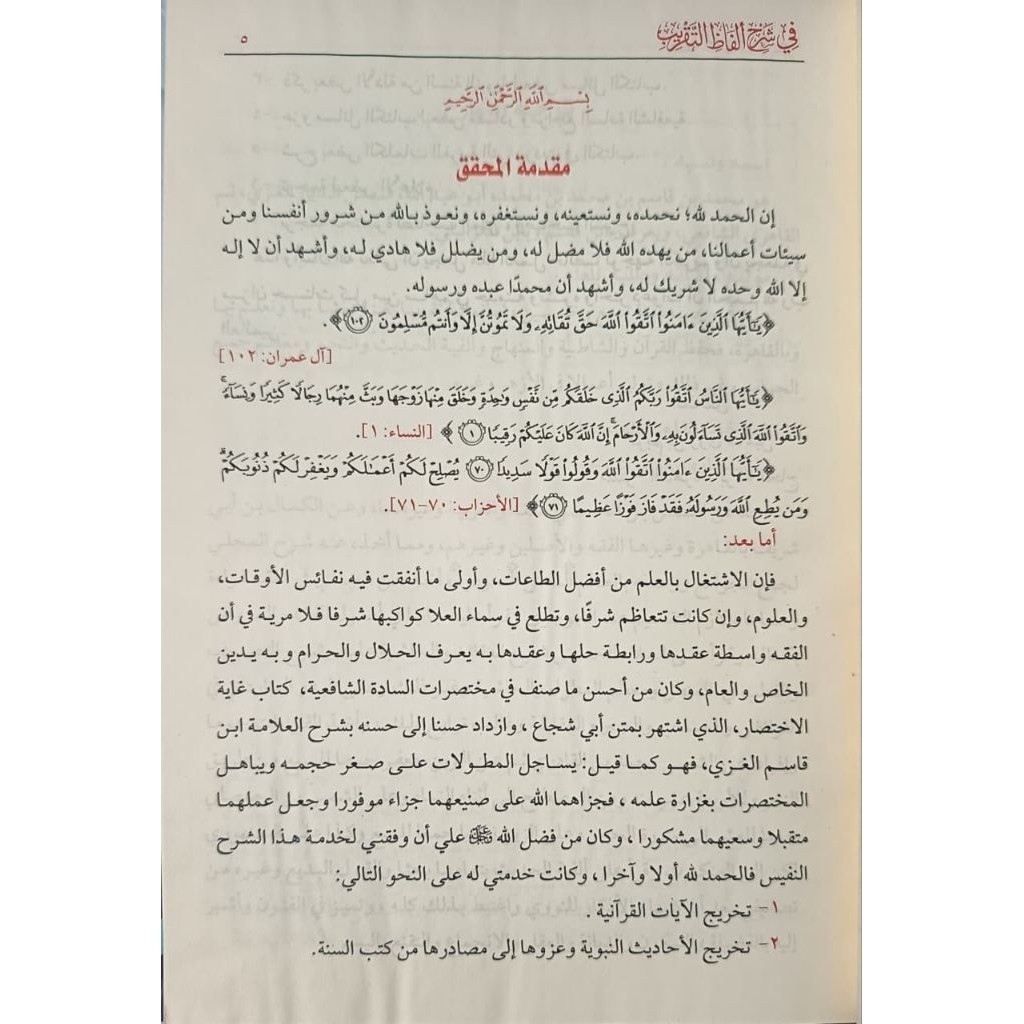 في شرح ألفاظ التقريب
٥
بسم الله الرحمن الرحيم
مقدمة المحقق
إن الحمد لله؛ نحمده، ونستعينه، ونستغفره، ونعوذ بالله من شرور أنفسنا ومن
سيئات أعمالنا، من يهده الله فلا مضل له، ومن يضلل فلا هادي له، وأشهد أن لا إله
إلا الله وحده لا شريك له، وأشهد أن محمدًا عبده ورسوله.
﴿يَٰٓأَيُّهَا ٱلَّذِينَ ءَامَنُوا۟ ٱتَّقُوا۟ ٱللَّهَ حَقَّ تُقَاتِهِۦ وَلَا تَمُوتُنَّ إِلَّا وَأَنتُم مُّسْلِمُونَ ١٠٢﴾.
[آل عمران: ١٠٢]
﴿يَٰٓأَيُّهَا ٱلنَّاسُ ٱتَّقُوا۟ رَبَّكُمُ ٱلَّذِى خَلَقَكُم مِّن نَّفْسٍ وَٰحِدَةٍ وَخَلَقَ مِنْهَا زَوْجَهَا وَبَثَّ مِنْهُمَا رِجَالًا كَثِيرًا وَنِسَآءً ۚ
وَٱتَّقُوا۟ ٱللَّهَ ٱلَّذِى تَسَآءَلُونَ بِهِۦ وَٱلْأَرْحَامَ ۚ إِنَّ ٱللَّهَ كَانَ عَلَيْكُمْ رَقِيبًا ١﴾ [النساء: ١].
﴿يَٰٓأَيُّهَا ٱلَّذِينَ ءَامَنُوا۟ ٱتَّقُوا۟ ٱللَّهَ وَقُولُوا۟ قَوْلًا سَدِيدًا ٧٠ يُصْلِحْ لَكُمْ أَعْمَٰلَكُمْ وَيَغْفِرْ لَكُمْ ذُنُوبَكُمْ ۗ
وَمَن يُطِعِ ٱللَّهَ وَرَسُولَهُۥ فَقَدْ فَازَ فَوْزًا عَظِيمًا ٧١﴾ [الأحزاب: ٧٠-٧١].
أما بعد:
فإن الاشتغال بالعلم من أفضل الطاعات، وأولى ما أنفقت فيه نفائس الأوقات،
والعلوم، وإن كانت تتعاظم شرفًا، وتطلع في سماء العلا كواكبها شرفا فلا مرية في أن
الفقه واسطة عقدها ورابطة حلها وعقدها به يعرف الحلال والحرام و به يدين
الخاص والعام، وكان من أحسن ما صنف في مختصرات السادة الشافعية، كتاب غاية
الاختصار، الذي اشتهر بمتن أبي شجاع ، وازداد حسنا إلى حسنه بشرح العلامة ابن
قاسم الغزي، فهو كما قيل: يساجل المطولات على صغر حجمه ويباهل
المختصرات بغزارة علمه ، فجزاهما الله على صنيعهما جزاء موفورا وجعل عملهما
متقبلا وسعيهما مشكورا ، وكان من فضل الله علي أن وفقني لخدمة هذا الشرح
النفيس فالحمد لله أولا وآخرا ، وكانت خدمتي له على النحو التالي:
١- تخريج الآيات القرآنية .
٢- تخريج الأحاديث النبوية وعزوها إلى مصادرها من كتب السنة.